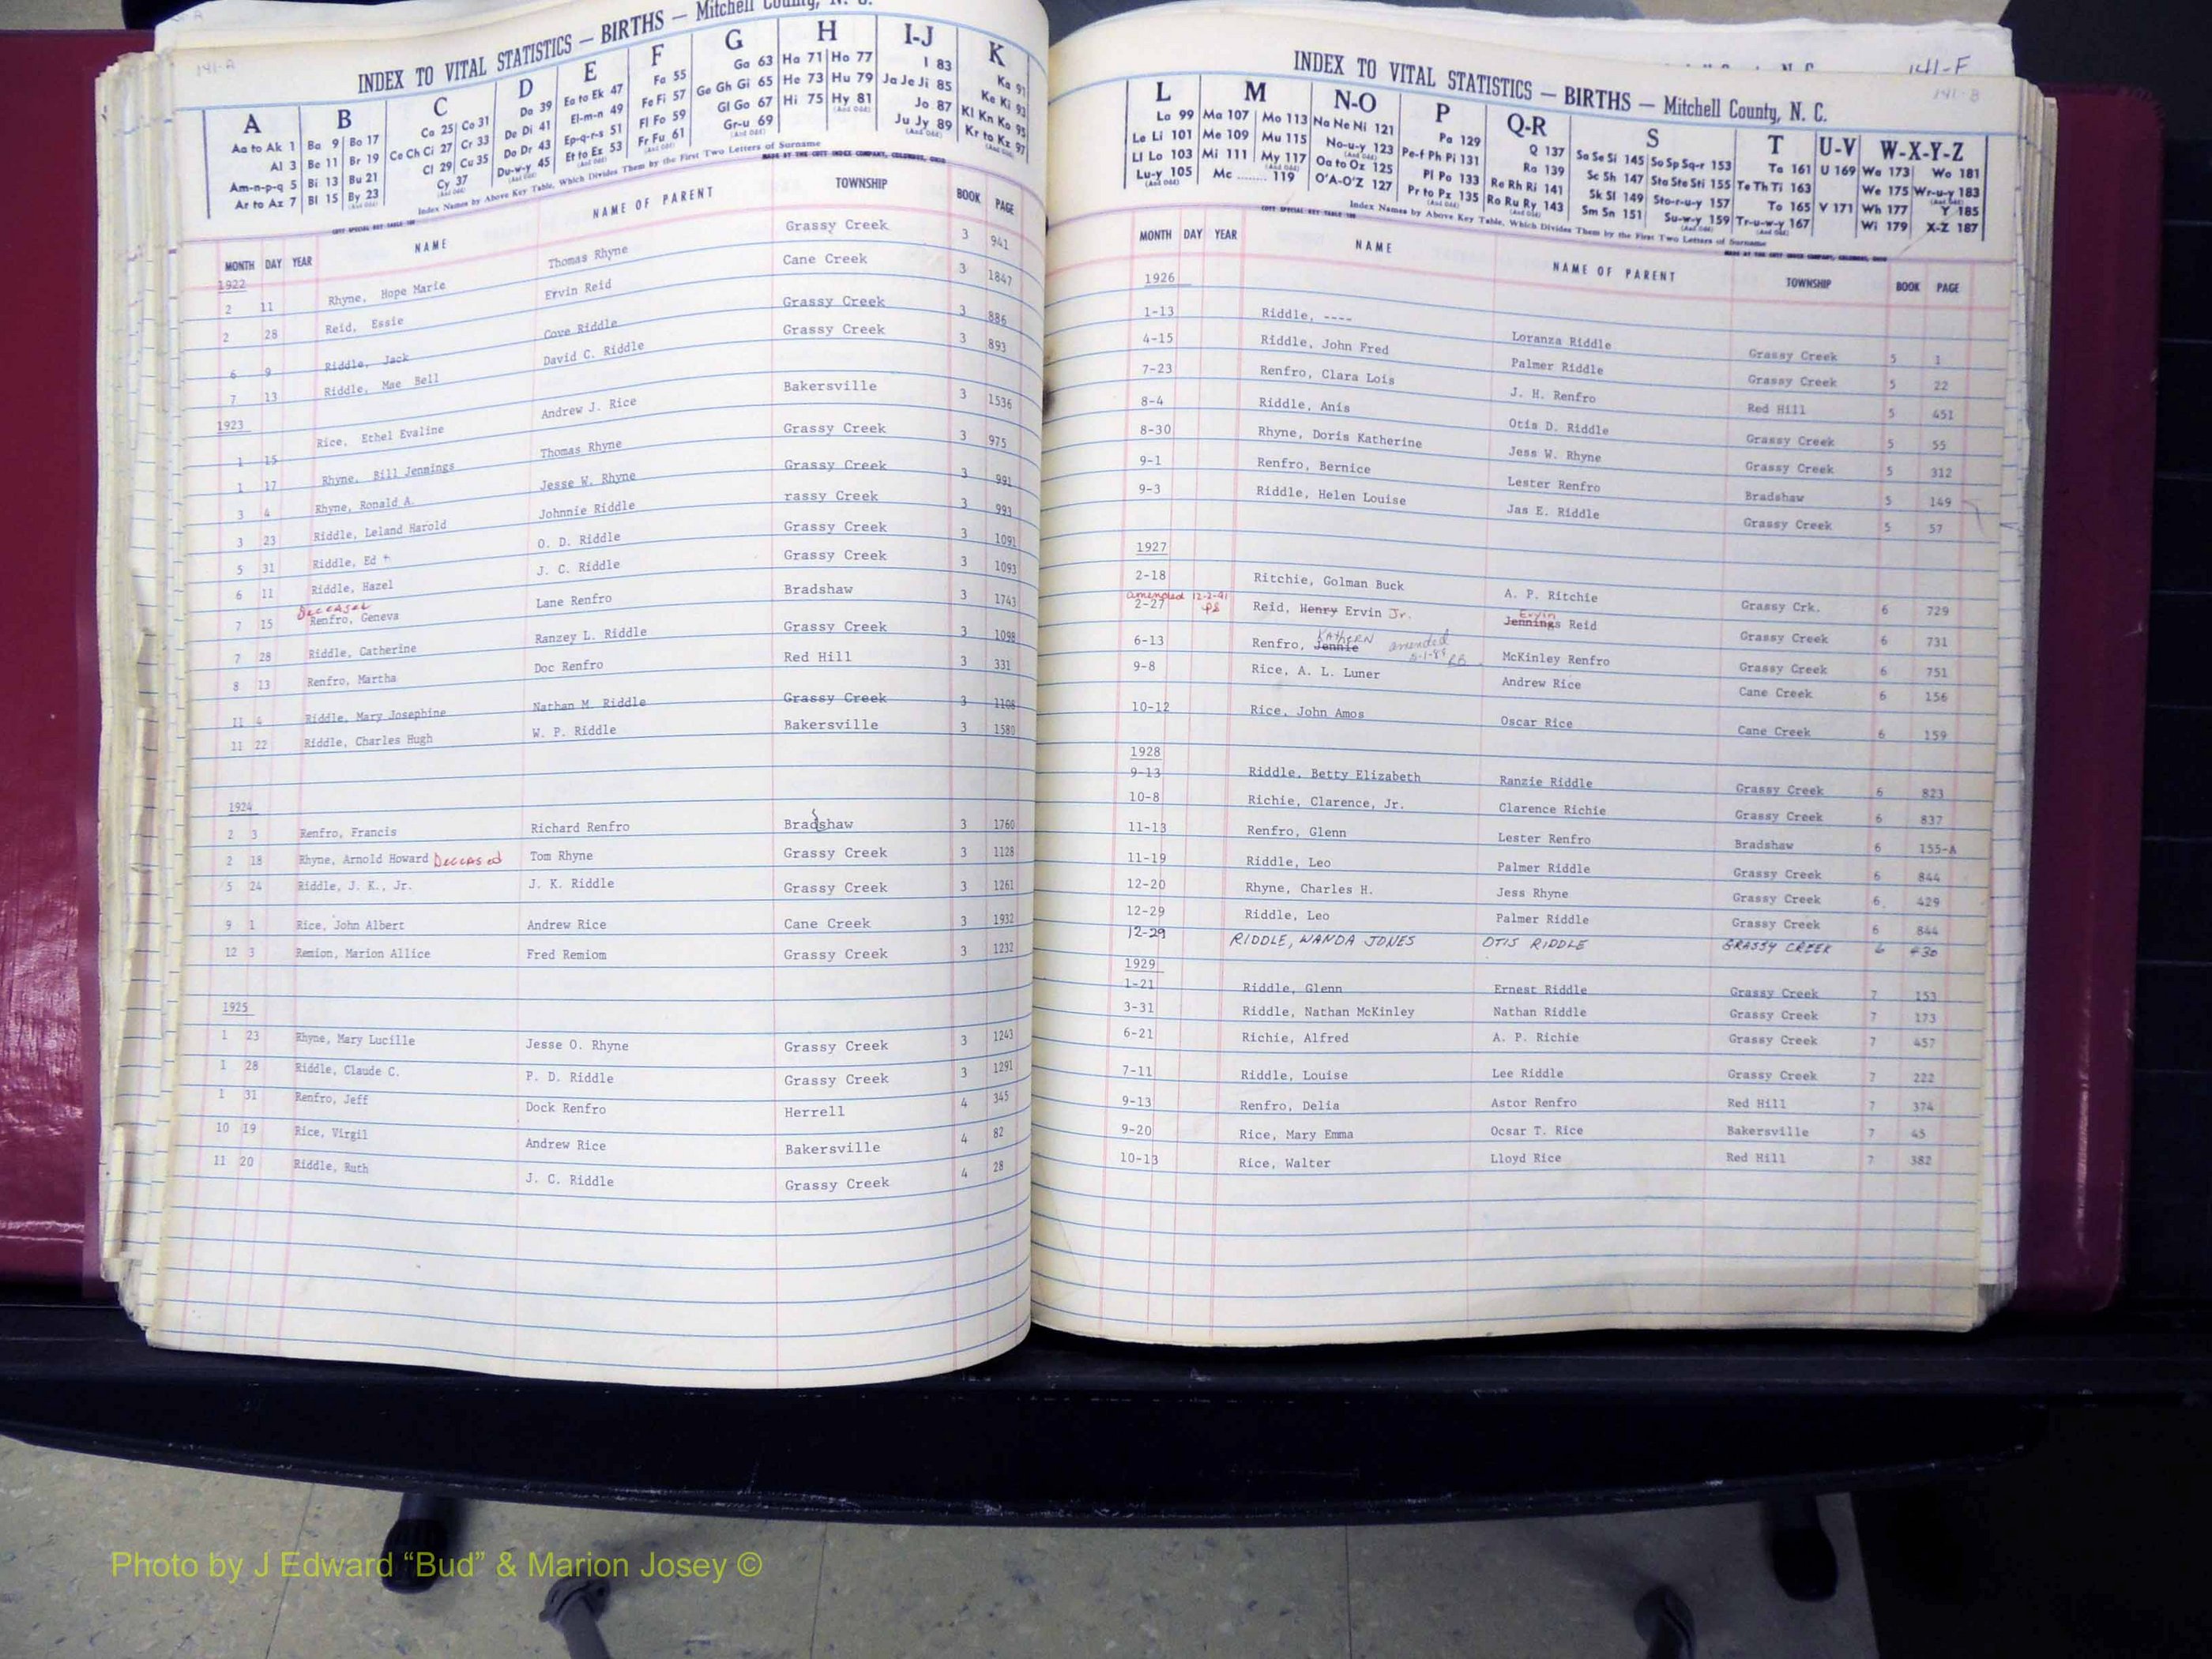 141-A
INDEX TO VITAL STATISTICS — BIRTHS — Mitchell County, N. C.
A B C D E F G H I-J K
Aa to Ak 1 Ba 9 Bo 17 Ca 25 Co 31 Da 39 Ea to Ek 47 Fa 55 Ga 63 Ha 71 Ho 77 I 83 Ka 91
Al 3 Be 11 Br 19 Ce Ch Ci 27 Cr 33 De Di 41 El-m-n 49 Fe Fi 57 Ge Gh Gi 65 He 73 Hu 79 Ja Je Ji 85 Ke Ki 93
Am-n-p-q 5 Bi 13 Bu 21 Cl 29 Cu 35 Do Dr 43 Ep-q-r-s 51 Fl Fo 59 Gl Go 67 Hi 75 Hy 81 Jo 87 Kl Kn Ko 95
Ar to Az 7 Bl 15 By 23 Cy 37 Du-w-y 45 Et to Ez 53 Fr Fu 61 Gr-u 69 Ju Jy 89 Kr to Kz 97
Index Names by Above Key Table, Which Divides Them by the First Two Letters of Surname
MADE BY THE COTT INDEX COMPANY, COLUMBUS, OHIO
COTT SPECIAL KEY TABLE 188
MONTH DAY YEAR NAME NAME OF PARENT TOWNSHIP BOOK PAGE
1922
2 11 Rhyne, Hope Marie Thomas Rhyne Grassy Creek 3 941
2 28 Reid, Essie Ervin Reid Cane Creek 3 1847
6 9 Riddle, Jack Cove Riddle Grassy Creek 3 886
7 13 Riddle, Mae Bell David C. Riddle Grassy Creek 3 893
1923
1 15 Rice, Ethel Evaline Andrew J. Rice Bakersville 3 1536
1 17 Rhyne, Bill Jennings Thomas Rhyne Grassy Creek 3 975
3 4 Rhyne, Ronald A. Jesse W. Rhyne Grassy Creek 3 991
3 23 Riddle, Leland Harold Johnnie Riddle rassy Creek 3 993
5 31 Riddle, Ed O. D. Riddle Grassy Creek 3 1091
6 11 Riddle, Hazel J. C. Riddle Grassy Creek 3 1093
Deceased
7 15 Renfro, Geneva Lane Renfro Bradshaw 3 1743
7 28 Riddle, Catherine Ranzey L. Riddle Grassy Creek 3 1098
8 13 Renfro, Martha Doc Renfro Red Hill 3 331
11 4 Riddle, Mary Josephine Nathan M. Riddle Grassy Creek 3 1108
11 22 Riddle, Charles Hugh W. P. Riddle Bakersville 3 1580
1924
2 3 Renfro, Francis Richard Renfro Bradshaw 3 1760
2 18 Rhyne, Arnold Howard Deceased Tom Rhyne Grassy Creek 3 1128
5 24 Riddle, J. K., Jr. J. K. Riddle Grassy Creek 3 1261
9 1 Rice, John Albert Andrew Rice Cane Creek 3 1932
12 3 Remion, Marion Allice Fred Remiom Grassy Creek 3 1232
1925
1 23 Rhyne, Mary Lucille Jesse O. Rhyne Grassy Creek 3 1243
1 28 Riddle, Claude C. P. D. Riddle Grassy Creek 3 1291
1 31 Renfro, Jeff Dock Renfro Herrell 4 345
10 19 Rice, Virgil Andrew Rice Bakersville 4 82
11 20 Riddle, Ruth J. C. Riddle Grassy Creek 4 28
141-F
141-B
INDEX TO VITAL STATISTICS — BIRTHS — Mitchell County, N. C.
L M N-O P Q-R S T U-V W-X-Y-Z
La 99 Ma 107 Mo 113 Na Ne Ni 121 Pa 129 Q 137 Sa Se Si 145 So Sp Sq-r 153 Ta 161 U 169 Wa 173 Wo 181
Le Li 101 Me 109 Mu 115 No-u-y 123 Pe-f Ph Pi 131 Ra 139 Sc Sh 147 Sta Ste Sti 155 Te Th Ti 163 We 175 Wr-u-y 183
Ll Lo 103 Mi 111 My 117 Oa to Oz 125 Pl Po 133 Re Rh Ri 141 Sk Sl 149 Sto-r-u-y 157 To 165 V 171 Wh 177 Y 185
Lu-y 105 Mc 119 O'A-O'Z 127 Pr to Pz 135 Ro Ru Ry 143 Sm Sn 151 Su-w-y 159 Tr-u-w-y 167 Wi 179 X-Z 187
Index Names by Above Key Table, Which Divides Them by the First Two Letters of Surname
COTT SPECIAL KEY TABLE 188
MADE BY THE COTT INDEX COMPANY, COLUMBUS, OHIO
MONTH DAY YEAR NAME NAME OF PARENT TOWNSHIP BOOK PAGE
1926
1-13 Riddle, ---- Loranza Riddle Grassy Creek 5 1
4-15 Riddle, John Fred Palmer Riddle Grassy Creek 5 22
7-23 Renfro, Clara Lois J. H. Renfro Red Hill 5 451
8-4 Riddle, Anis Otis D. Riddle Grassy Creek 5 55
8-30 Rhyne, Doris Katherine Jess W. Rhyne Grassy Creek 5 312
9-1 Renfro, Bernice Lester Renfro Bradshaw 5 149
9-3 Riddle, Helen Louise Jas E. Riddle Grassy Creek 5 57
1927
2-18 Ritchie, Golman Buck A. P. Ritchie Grassy Crk. 6 729
amended 12-2-91 Ervin
2-27 Reid, Henry Ervin Jr. Jennings Reid Grassy Creek 6 731
KAthERN amended
6-13 Renfro, Jennie 5-1-89 McKinley Renfro Grassy Creek 6 751
9-8 Rice, A. L. Luner Andrew Rice Cane Creek 6 156
10-12 Rice, John Amos Oscar Rice Cane Creek 6 159
1928
9-13 Riddle, Betty Elizabeth Ranzie Riddle Grassy Creek 6 823
10-8 Richie, Clarence, Jr. Clarence Richie Grassy Creek 6 837
11-13 Renfro, Glenn Lester Renfro Bradshaw 6 155-A
11-19 Riddle, Leo Palmer Riddle Grassy Creek 6 844
12-20 Rhyne, Charles H. Jess Rhyne Grassy Creek 6 429
12-29 Riddle, Leo Palmer Riddle Grassy Creek 6 844
12-29 RIDDLE, WANDA JONES OTIS RIDDLE GRASSY CREEK 6 430
1929
1-21 Riddle, Glenn Ernest Riddle Grassy Creek 7 153
3-31 Riddle, Nathan McKinley Nathan Riddle Grassy Creek 7 173
6-21 Richie, Alfred A. P. Richie Grassy Creek 7 457
7-11 Riddle, Louise Lee Riddle Grassy Creek 7 222
9-13 Renfro, Delia Astor Renfro Red Hill 7 374
9-20 Rice, Mary Emma Ocsar T. Rice Bakersville 7 45
10-13 Rice, Walter Lloyd Rice Red Hill 7 382
Photo by J Edward “Bud” & Marion Josey ©